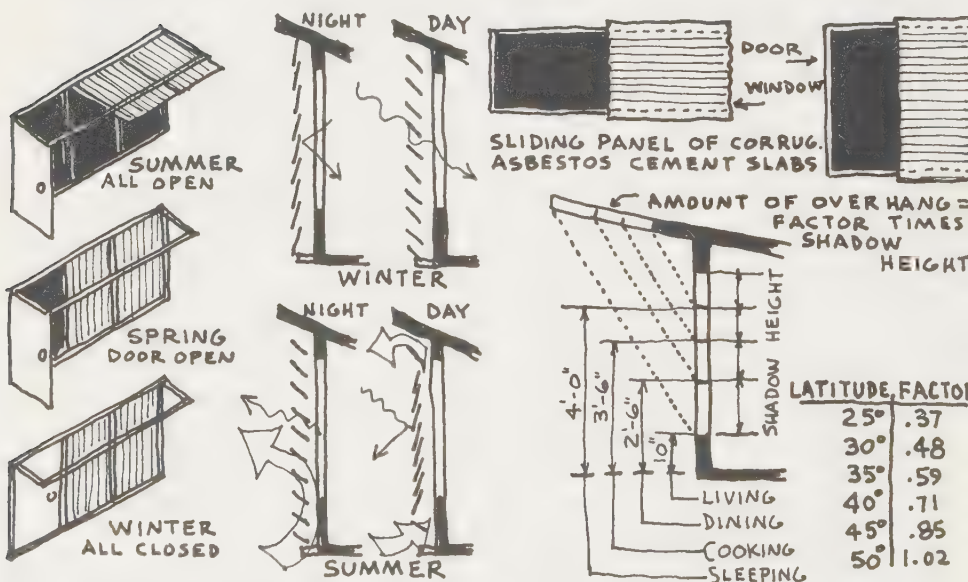 SUMMER
ALL OPEN
SPRING
DOOR OPEN
WINTER
ALL CLOSED
NIGHT DAY
WINTER
NIGHT DAY
SUMMER
DOOR
WINDOW
SLIDING PANEL OF CORRUG.
ASBESTOS CEMENT SLABS
AMOUNT OF OVERHANG =
FACTOR TIMES
SHADOW
HEIGHT
SHADOW HEIGHT
4'-0"
3'-6"
2'-6"
10"
LIVING
DINING
COOKING
SLEEPING
LATITUDE FACTOR
25° .37
30° .48
35° .59
40° .71
45° .85
50° 1.02